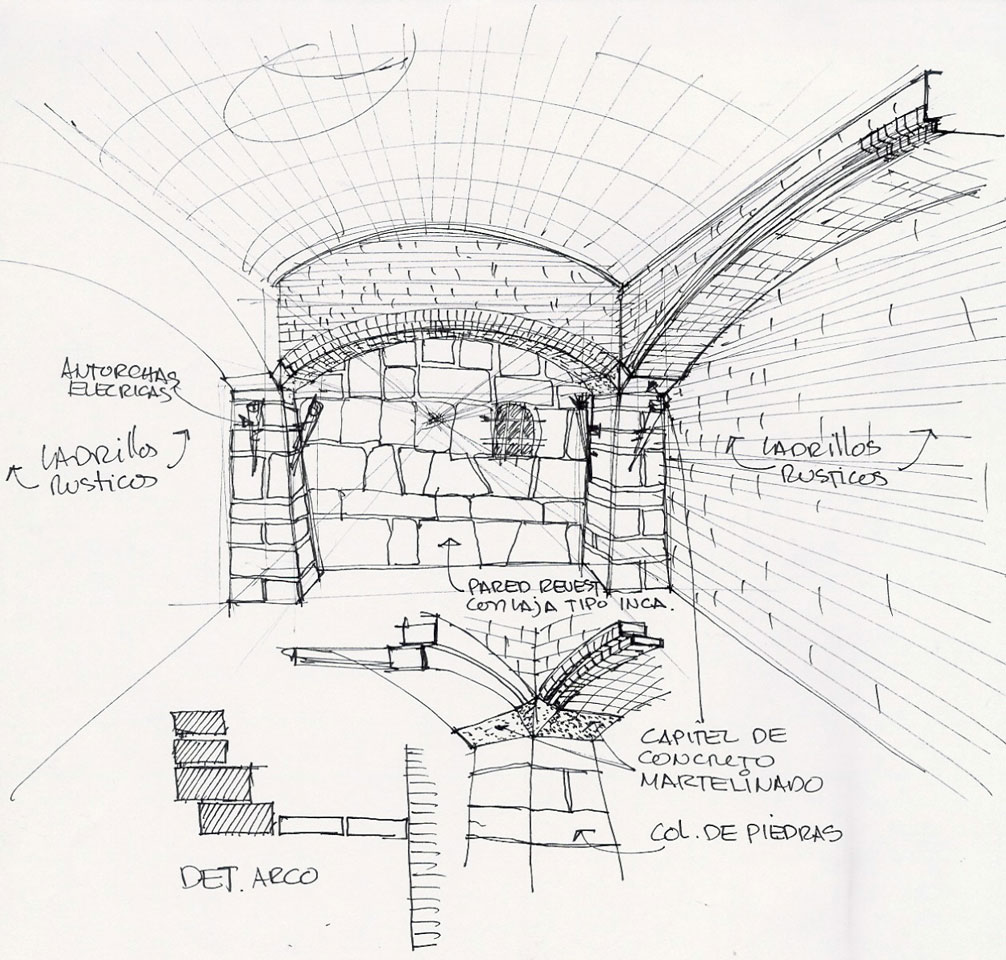 ANTORCHAS
ELECRICAS
LADRILLOS
RUSTICOS
LADRILLOS
RUSTICOS
PARED REVEST
CON LAJA TIPO INCA.
CAPITEL DE
CONCRETO
MARTELINADO
COL. DE PIEDRAS
DET. ARCO